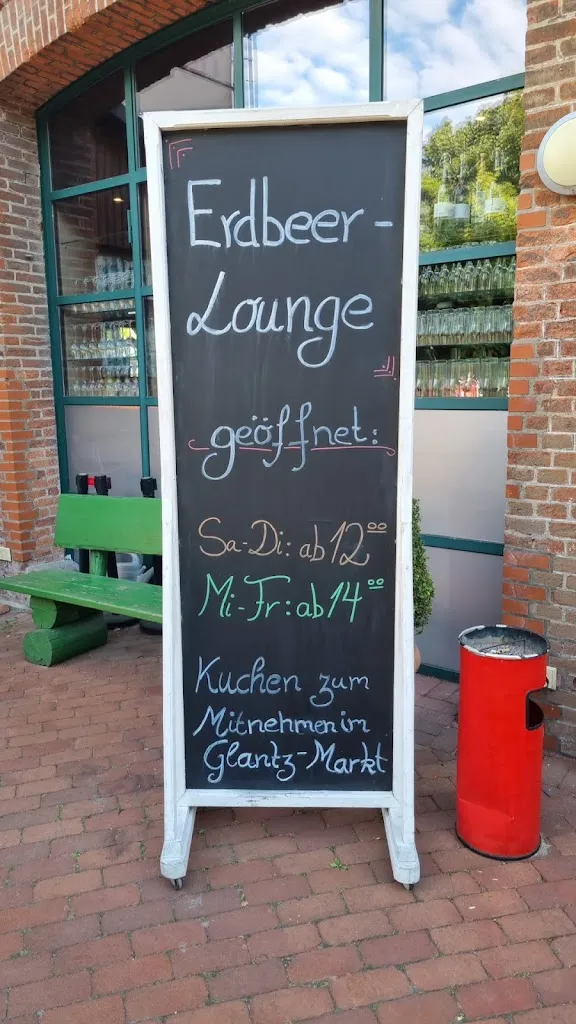 Erdbeer-
Lounge
geöffnet:
Sa-Di: ab 12⁰⁰
Mi-Fr: ab 14⁰⁰
Kuchen zum
Mitnehmen im
Glantz-Markt